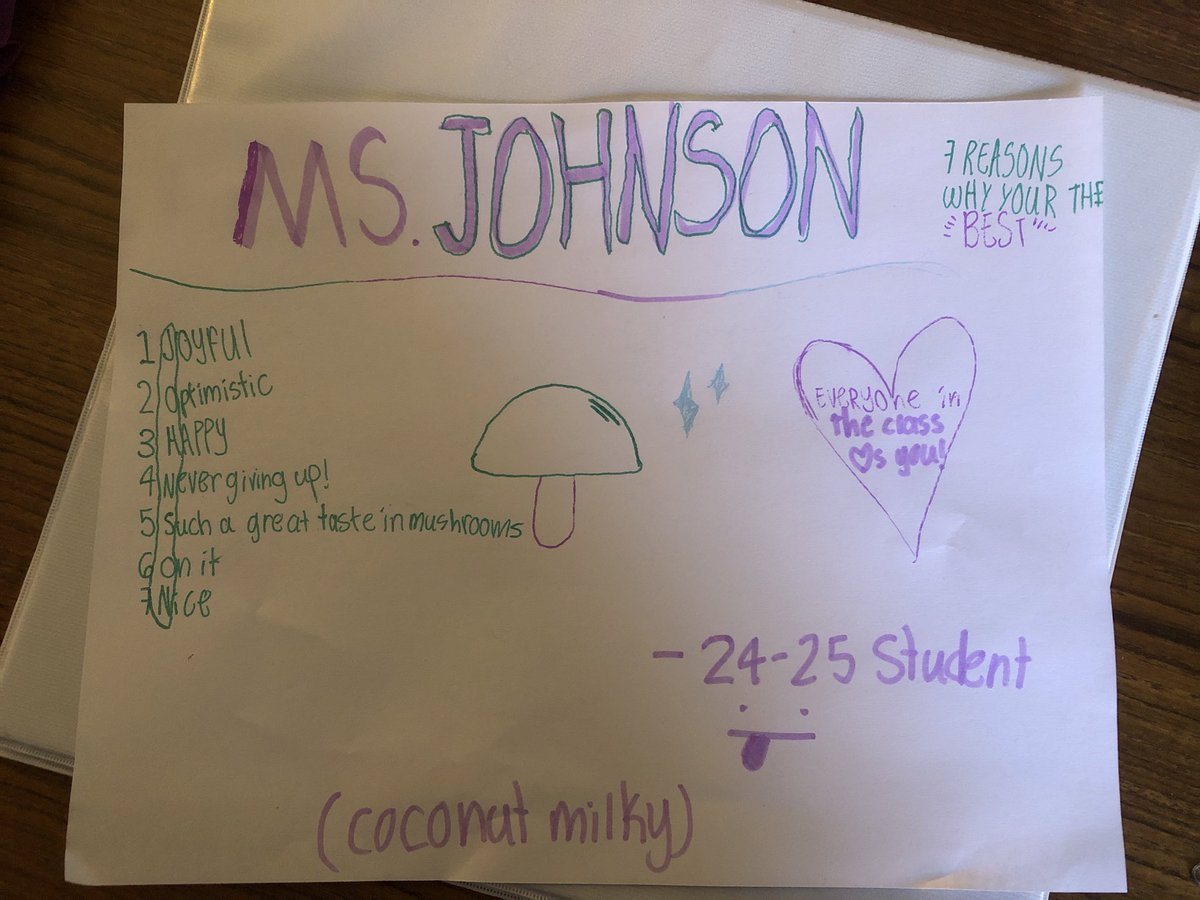 MS. JOHNSON
7 REASONS
WHY YOUR THE
"BEST"
1 Joyful
2 Optimistic
3 HAPPY
4 Never giving up!
5 Such a great taste in mushrooms
6 on it
7 Nice
EVERYONE in
the class
♡s you!
- 24-25 Student
(coconut milky)